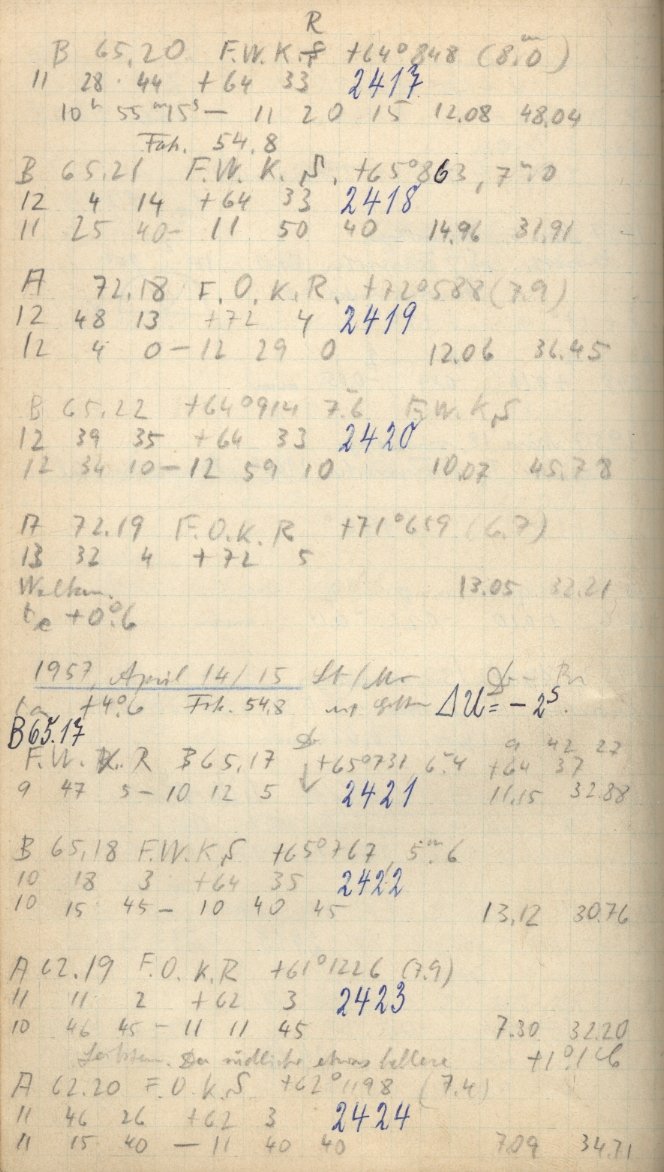 R
B 65,20 F.W.K.S +64°848 (8,0)
11 28 44 +64 33 2417
10h 55m 15s – 11 20 15 12.08 48.04
Fok. 54.8
B 65,21 F.W.K.S. +65°863, 7.0
12 4 14 +64 33 2418
11 25 40 – 11 50 40 14.96 31.91
A 72,18 F.O.K.R. +72°588 (7.9)
12 48 13 +72 4 2419
12 4 0 – 12 29 0 12.06 36.45
B 65,22 +64°914 7.6 F.W.K.S
12 39 35 +64 33 2420
12 34 10 – 12 59 10 10.07 45.78
A 72.19 F.O.K.R +71°659 (6.7)
13 32 4 +72 5
Wolken. 13.05 32.21
te +0°.6
1957, April 14/15
ta +4°.6 Fok. 54.8 ΔU = – 2s.
B65.17
9 42 27
F.W.K.R B65,17 +65°731 6.4 +64 37
9 47 5 – 10 12 5 2421 11.15 32.88
B 65,18 F.W.K.S +65°767, 5m.6
10 18 3 +64 35 2422
10 15 45 – 10 40 45 13.12 30.76
A 62.19 F.O.K.R +61°1226 (7.9)
11 11 2 +62 3 2423
10 46 45 – 11 11 45 7.30 32.20
Der südliche etwas hellere
A 62.20 F.O.K.S. +62°1198 (7.4)
11 46 26 +62 3 2424
11 15 40 – 11 40 40 7.09 34.71